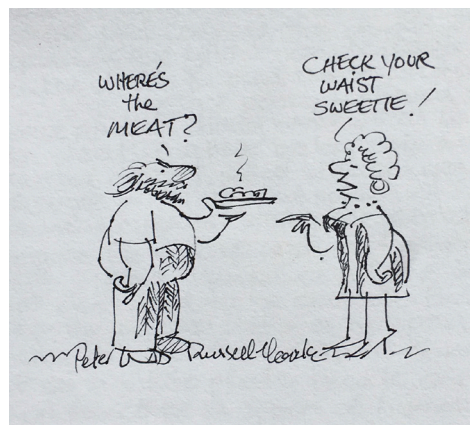 WHERE'S
the
MEAT?
CHECK YOUR
WAIST
SWEETIE!
Peter Russell-Clarke